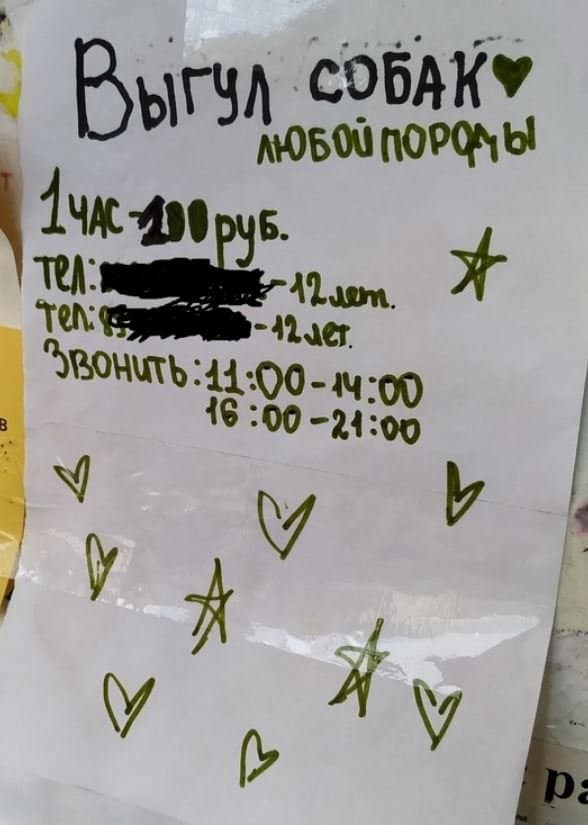 Выгул собак
любой породы
1 час - 100 руб.
тел: - 12 лет.
тел: 89 - 12 лет.
Звонить: 11:00 - 14:00
16:00 - 21:00